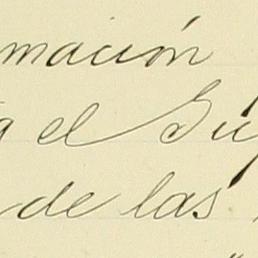 mación
a el Sup
de las